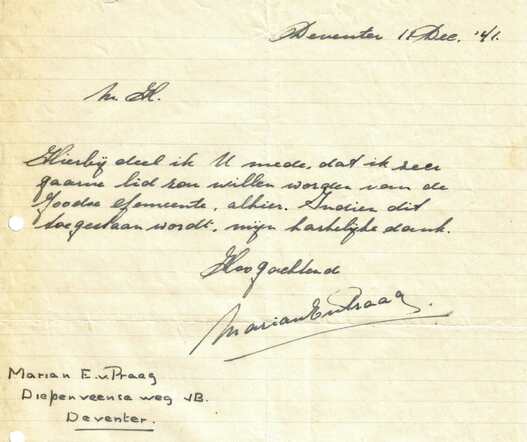 Deventer 11 Dec. '41.
M. H.
Hierbij deel ik U mede, dat ik zeer
gaarne lid zou willen worden van de
Joodse Gemeente, alhier. Indien dit
toegestaan wordt, mijn hartelijke dank.
Hoogachtend
Marian E v Praag.
Marian E. v Praag
Diepenveense weg
Deventer.